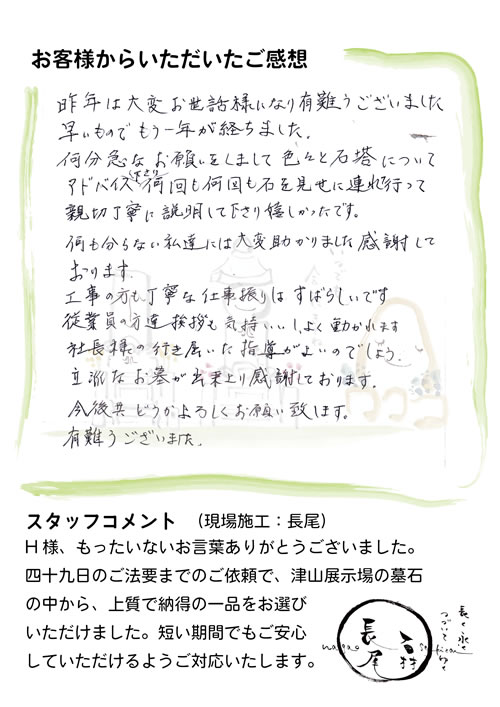 お客様からいただいたご感想
昨年は大変お世話様になり有難うございました
早いものでもう一年が経ちました。
何分急なお願いをしまして色々と石塔について
アドバイス下さり何回も何回も石を見せに連れ行って
親切丁寧に説明して下さり嬉しかったです。
何も分らない私達には大変助かりました感謝して
おります。
工事の方も丁寧な仕事振りはすばらしいです
従業員の方達挨拶も気持いいし、よく動かれます
社長様の行き届いた指導がよいのでしょう。
立派なお墓が出来上り感謝しております。
今後共どうかよろしくお願い致します。
有難うございました。
スタッフコメント （現場施工：長尾）
H様、もったいないお言葉ありがとうございました。
四十九日のご法要までのご依頼で、津山展示場の墓石
の中から、上質で納得の一品をお選び
いただけました。短い期間でもご安心
していただけるようご対応いたします。
長く永く
つづいてゆく
長尾
nagao